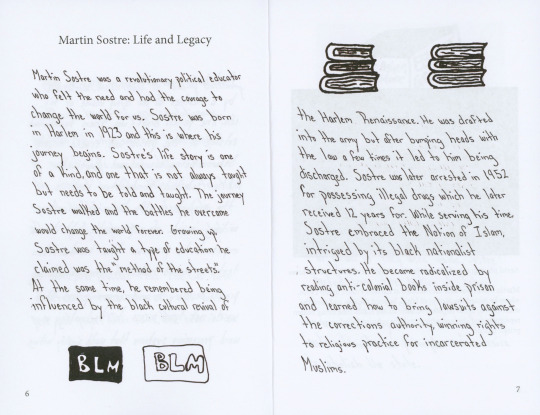 Martin Sostre: Life and Legacy
Martin Sostre was a revolutionary political educator
who felt the need and had the courage to
change the world for us. Sostre was born
in Harlem in 1923 and this is where his
journey begins. Sostre's life story is one
of a kind, and one that is not always taught
but needs to be told and taught. The journey
Sostre walked and the battles he overcame
would change the world forever. Growing up,
Sostre was taught a type of education he
claimed was the "method of the streets".
At the same time, he remembered being
influenced by the black cultural revival of
BLM BLM
6
the Harlem Renaissance. He was drafted
into the army but after bumping heads with
the law a few times it led to him being
discharged. Sostre was later arrested in 1952
for possessing illegal drugs which he later
received 12 years for. While serving his time,
Sostre embraced the Nation of Islam,
intrigued by its black nationalist
structures. He became radicalized by
reading anti-colonial books inside prison
and learned how to bring lawsuits against
the corrections authority, winning rights
to religious practice for incarcerated
Muslims.
7